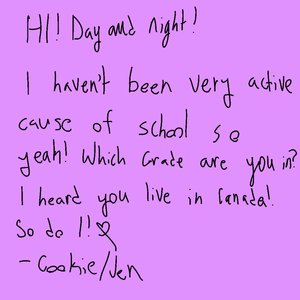 HI! Day and night!
I haven't been very active
cause of school so
yeah! Which Grade are you in?
I heard you live in Canada!
So do I!
- Cookie/Jen